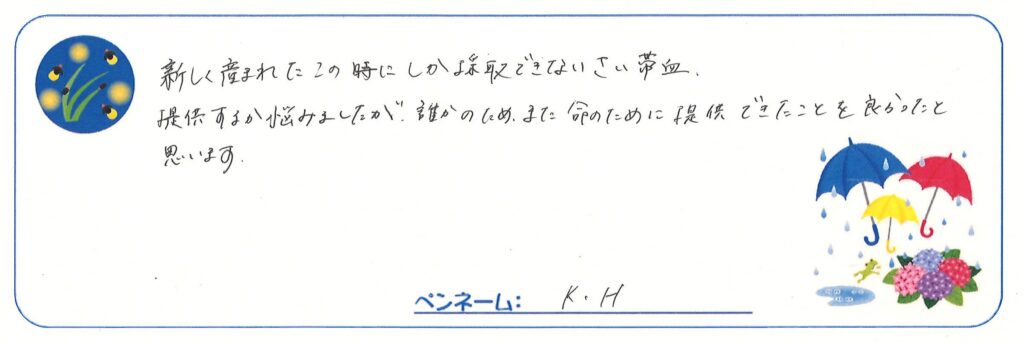 新しく産まれたこの時にしか採取できないさい帯血、
提供するか悩みましたが、誰かのため、また命のために提供できたことを良かったと
思います。
ペンネーム: K.H